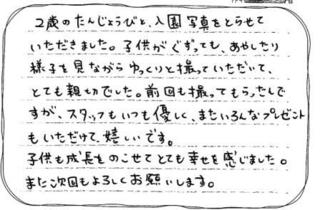 2歳のたんじょうびと、入園写真をとらせて
いただきました。子供がぐずっても、あやしたり
様子を見ながらゆっくりと撮っていただいて、
とても親切でした。前回も撮ってもらったんで
すが、スタッフもいつも優しく、またいろんなプレゼント
もいただけて、嬉しいです。
子供も成長をのこせてとても幸せを感じました。
また次回もよろしくお願いします。